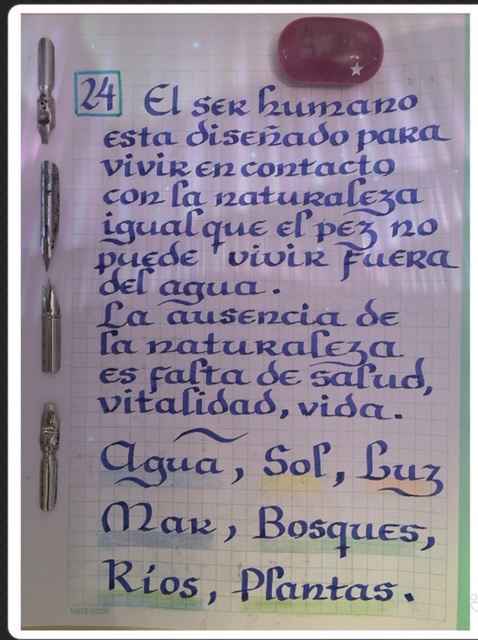 24 El ser humano
esta diseñado para
vivir en contacto
con la naturaleza
igual que el pez no
puede vivir fuera
del agua.
La ausencia de
la naturaleza
es falta de salud,
vitalidad, vida.
Agua, Sol, Luz
Mar, Bosques,
Ríos, Plantas.
NOTEBOOK